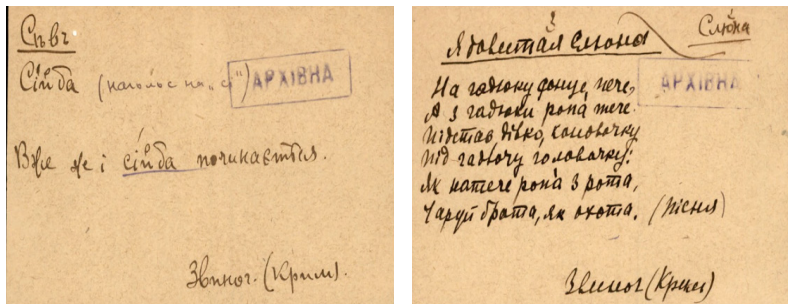 Сѣвъ
Сійба (наголос на „сі")
АРХІВНА
Вже же і сійба починаєтця.
Звиног. (Крим).
Слюна
Ядовитая слюна
АРХІВНА
На гадюку сонце пече,
А з гадюки ропа тече.
Підстав дівко, коновочку
Під гадючу головочку:
Як натече ропа з рота,
Чаруй брата, як охота. (Пісня)
Звиног (Крим)